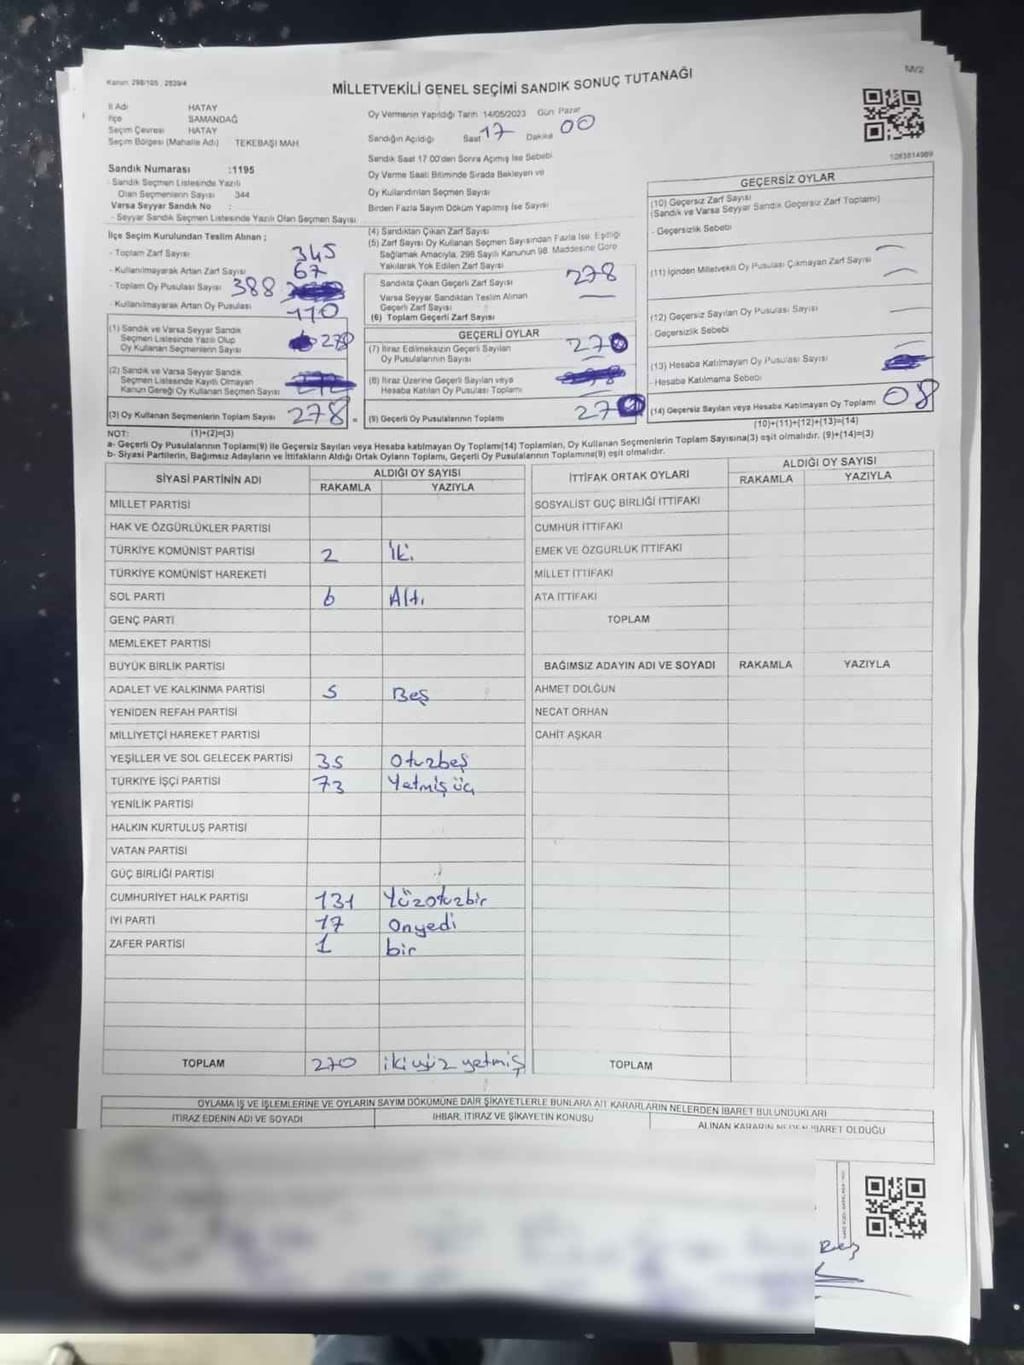 Kanun: 298/105 , 2839/4
MİLLETVEKİLİ GENEL SEÇİMİ SANDIK SONUÇ TUTANAĞI
MV2
İl Adı HATAY
İlçe SAMANDAĞ
Seçim Çevresi HATAY
Seçim Bölgesi (Mahalle Adı) TEKEBAŞI MAH.
Oy Vermenin Yapıldığı Tarih 14/05/2023 Gün Pazar
Sandığın Açıldığı Saat 17 Dakika 00
Sandık Saat 17:00'den Sonra Açımış İse Sebebi
Oy Verme Saati Bitiminde Sırada Bekleyen ve
Oy Kullandırılan Seçmen Sayısı
Birden Fazla Sayım Döküm Yapılmış İse Sayısı
Sandık Numarası :1195
- Sandık Seçmen Listesinde Yazılı
Olan Seçmenlerin Sayısı 344
Varsa Seyyar Sandık No :
- Seyyar Sandık Seçmen Listesinde Yazılı Olan Seçmen Sayısı
İlçe Seçim Kurulundan Teslim Alınan ;
- Toplam Zarf Sayısı 345
- Kullanılmayarak Artan Zarf Sayısı 67
- Toplam Oy Pusulası Sayısı 388
- Kullanılmayarak Artan Oy Pusulası 110
(1) Sandık ve Varsa Seyyar Sandık
Seçmen Listesinde Yazılı Olup
Oy Kullanan Seçmenlerin Sayısı 278
(2) Sandık ve Varsa Seyyar Sandık
Seçmen Listesinde Kayıtlı Olmayan
Kanun Gereği Oy Kullanan Seçmen Sayısı
(3) Oy Kullanan Seçmenlerin Toplam Sayısı 278
(4) Sandıktan Çıkan Zarf Sayısı
(5) Zarf Sayısı Oy Kullanan Seçmen Sayısından Fazla İse, Eşitliği
Sağlamak Amacıyla, 298 Sayılı Kanunun 98. Maddesine Göre
Yakılarak Yok Edilen Zarf Sayısı
Sandıkta Çıkan Geçerli Zarf Sayısı 278
Varsa Seyyar Sandıktan Teslim Alınan
Geçerli Zarf Sayısı —
(6) Toplam Geçerli Zarf Sayısı
GEÇERLİ OYLAR
(7) İtiraz Edilmeksizin Geçerli Sayılan
Oy Pusulalarının Sayısı 270
(8) İtiraz Üzerine Geçerli Sayılan veya
Hesaba Katılan Oy Pusulası Toplamı
= (9) Geçerli Oy Pusulalarının Toplamı 270
GEÇERSİZ OYLAR
(10) Geçersiz Zarf Sayısı
(Sandık ve Varsa Seyyar Sandık Geçersiz Zarf Toplamı)
- Geçersizlik Sebebi
(11) İçinden Milletvekili Oy Pusulası Çıkmayan Zarf Sayısı
(12) Geçersiz Sayılan Oy Pusulası Sayısı
- Geçersizlik Sebebi
(13) Hesaba Katılmayan Oy Pusulası Sayısı
- Hesaba Katılmama Sebebi
(14) Geçersiz Sayılan veya Hesaba Katılmayan Oy Toplamı 08
NOT: (1)+(2)=(3)
(10)+(11)+(12)+(13)=(14)
a- Geçerli Oy Pusulalarının Toplamı(9) ile Geçersiz Sayılan veya Hesaba katılmayan Oy Toplamı(14) Toplamları, Oy Kullanan Seçmenlerin Toplam Sayısına(3) eşit olmalıdır. (9)+(14)=(3)
b- Siyasi Partilerin, Bağımsız Adayların ve İttifakların Aldığı Ortak Oyların Toplamı, Geçerli Oy Pusulalarının Toplamına(9) eşit olmalıdır.
SİYASİ PARTİNİN ADI ALDIĞI OY SAYISI
RAKAMLA YAZIYLA
MİLLET PARTİSİ
HAK VE ÖZGÜRLÜKLER PARTİSİ
TÜRKİYE KOMÜNİST PARTİSİ 2 İki
TÜRKİYE KOMÜNİST HAREKETİ
SOL PARTİ 6 Altı
GENÇ PARTİ
MEMLEKET PARTİSİ
BÜYÜK BİRLİK PARTİSİ
ADALET VE KALKINMA PARTİSİ 5 Beş
YENİDEN REFAH PARTİSİ
MİLLİYETÇİ HAREKET PARTİSİ
YEŞİLLER VE SOL GELECEK PARTİSİ 35 Otuzbeş
TÜRKİYE İŞÇİ PARTİSİ 73 Yetmiş üç
YENİLİK PARTİSİ
HALKIN KURTULUŞ PARTİSİ
VATAN PARTİSİ
GÜÇ BİRLİĞİ PARTİSİ
CUMHURİYET HALK PARTİSİ 131 Yüzotuzbir
İYİ PARTİ 17 Onyedi
ZAFER PARTİSİ 1 bir
TOPLAM 270 ikiyüz yetmiş
İTTİFAK ORTAK OYLARI ALDIĞI OY SAYISI
RAKAMLA YAZIYLA
SOSYALİST GÜÇ BİRLİĞİ İTTİFAKI
CUMHUR İTTİFAKI
EMEK VE ÖZGÜRLÜK İTTİFAKI
MİLLET İTTİFAKI
ATA İTTİFAKI
TOPLAM
BAĞIMSIZ ADAYIN ADI VE SOYADI RAKAMLA YAZIYLA
AHMET DOLĞUN
NECAT ORHAN
CAHİT AŞKAR
TOPLAM
OYLAMA İŞ VE İŞLEMLERİNE VE OYLARIN SAYIM DÖKÜMÜNE DAİR ŞİKAYETLERLE BUNLARA AİT KARARLARIN NELERDEN İBARET BULUNDUKLARI
İTİRAZ EDENİN ADI VE SOYADI İHBAR, İTİRAZ VE ŞİKAYETİN KONUSU ALINAN KARARIN NEDEN İBARET OLDUĞU